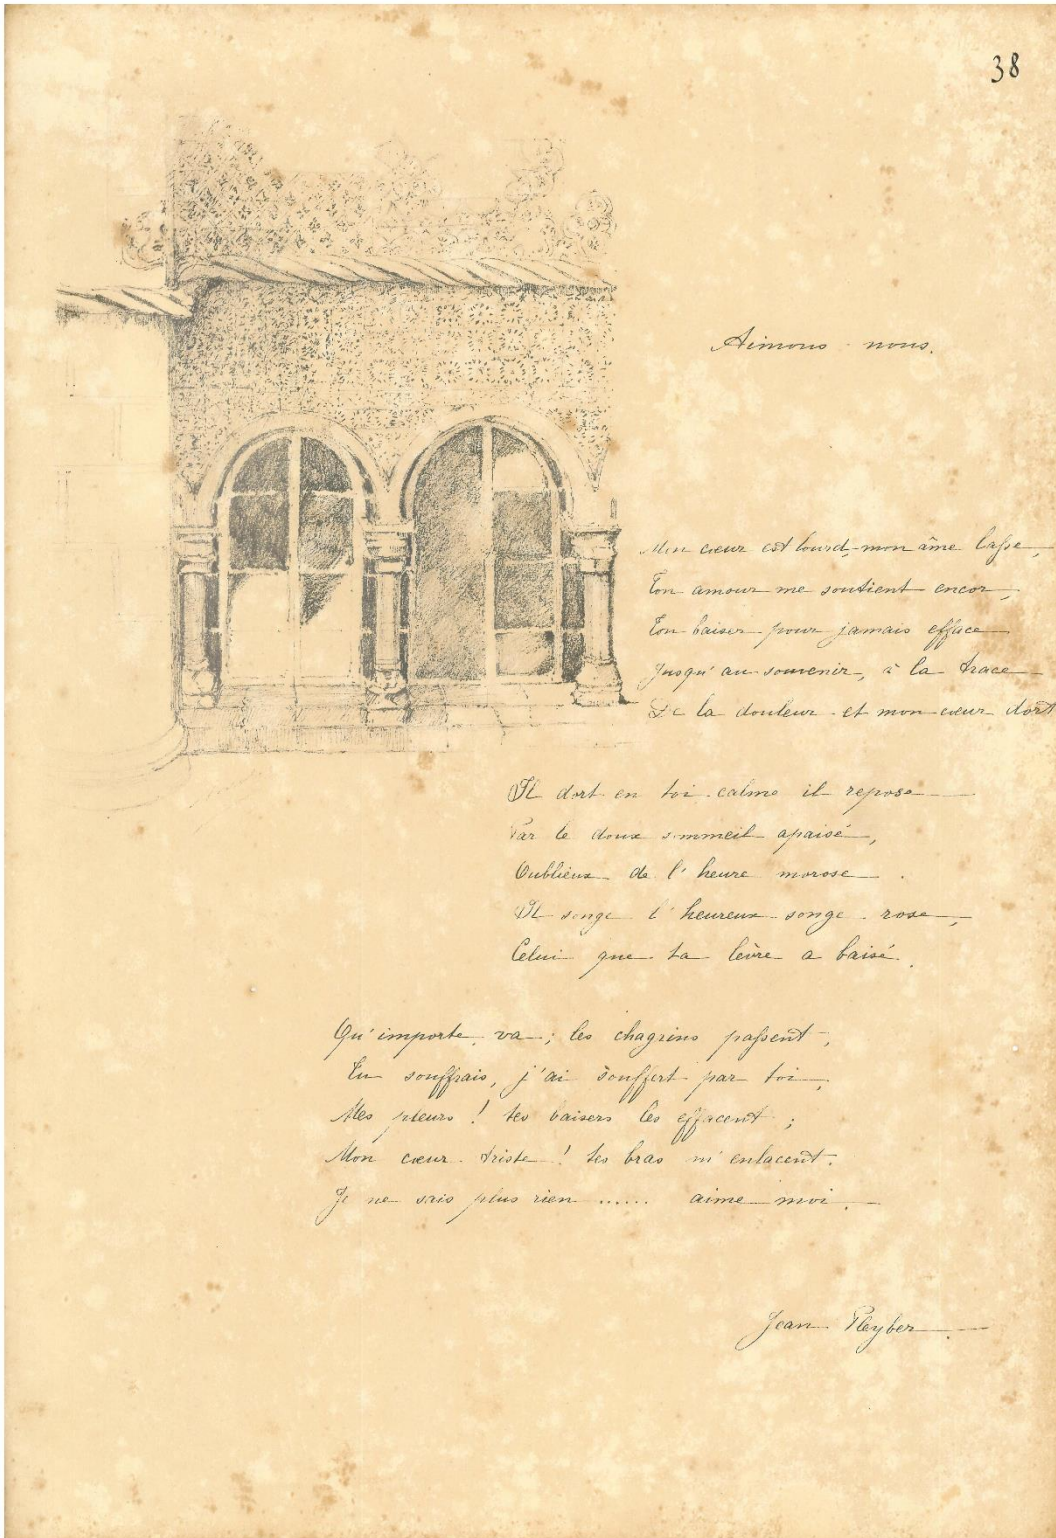 38
Aimons-nous.
Mon cœur est lourd, mon âme lasse,
Ton amour me soutient encor,
Ton baiser pour jamais efface
Jusqu'au souvenir, à la trace
De la douleur et mon cœur dort
Il dort en toi calme il repose
Par le doux sommeil apaisé,
Oublieux de l'heure morose.
Il songe l'heureux songe rose,
Celui que ta lèvre a baisé.
Qu'importe, va ; les chagrins passent,
Tu souffrais, j'ai souffert par toi,
Mes pleurs ! tes baisers les effacent ;
Mon cœur triste ! tes bras m'enlacent.
Je ne sais plus rien ...... aime moi.
Jean Pleyber.